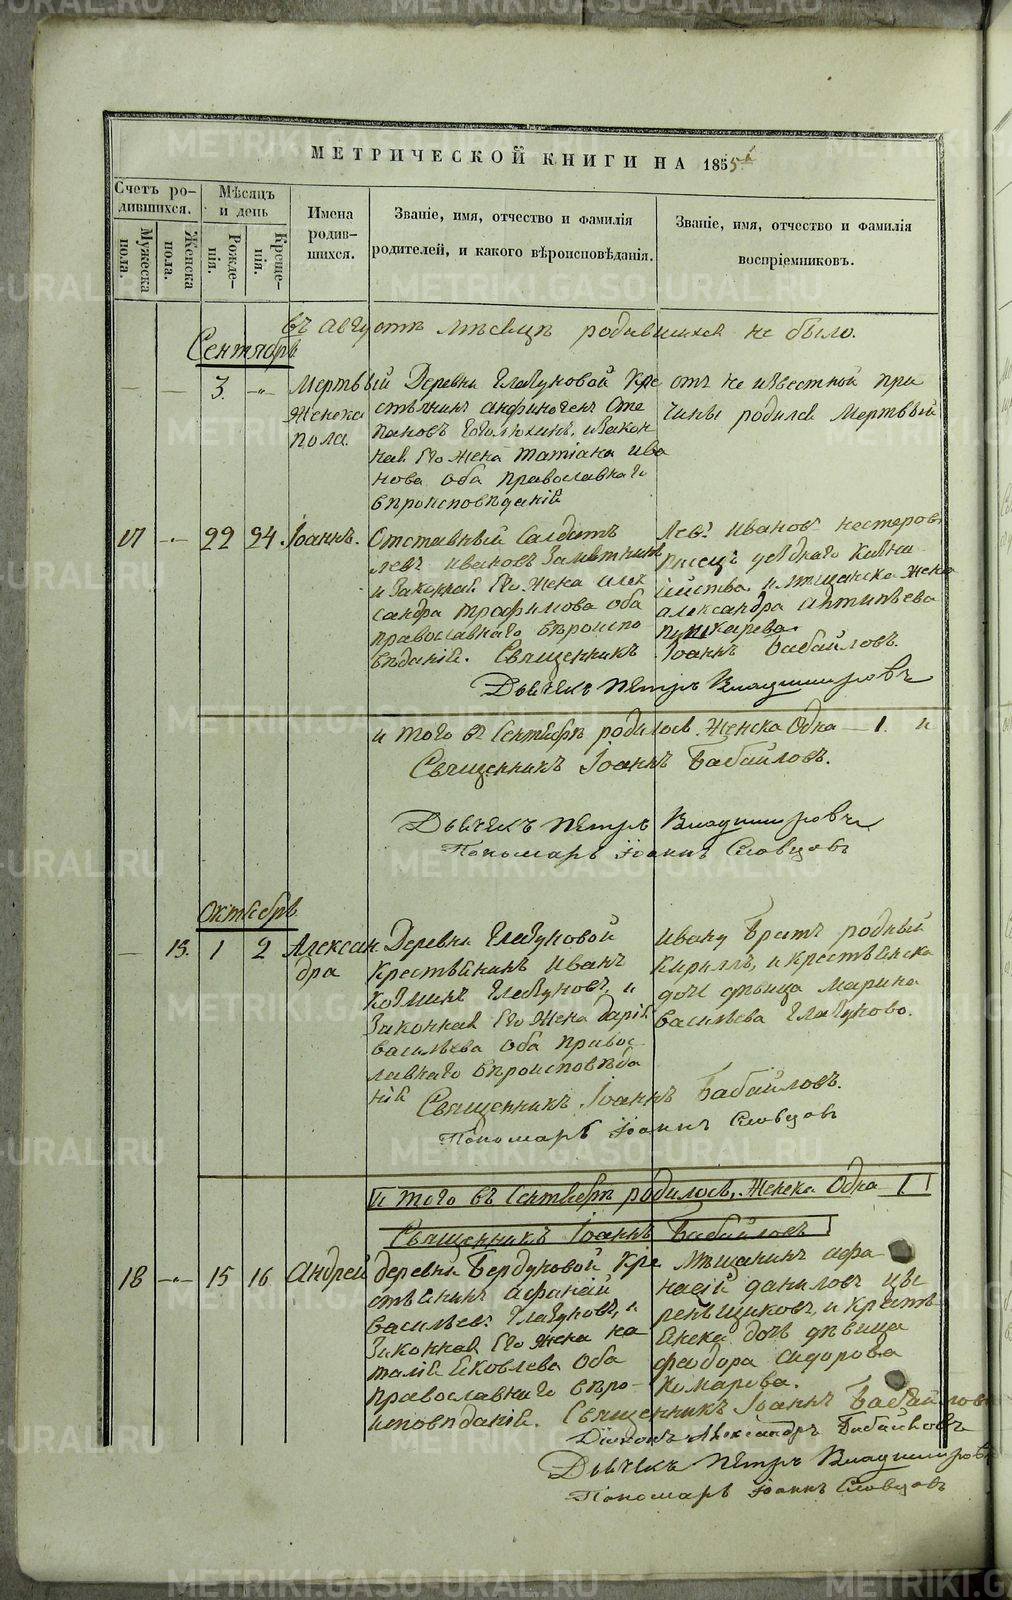 МЕТРИЧЕСКОЙ КНИГИ НА 1855й
Счетъ ро-
дившихся.
Мужеска
пола.
Женска
пола.
Мѣсяцъ
и день
Рожде-
нія.
Креще-
нія.
Имена
родив-
шихся.
Званіе, имя, отчество и фамилія
родителей, и какого вѣроисповѣданія.
Званіе, имя, отчество и фамилія
воспріемниковъ.
въ Августѣ мѣсяцѣ родившихся не было.
Сентябрь
— — 3. -"-
Мертвый
Женска
пола.
Деревни Глазуновой Кре
стьянинъ Анфиногенъ Сте
пановъ и Закон
ная Его Жена Татіана Ива
нова Оба Православнаго
вѣроисповѣданія
отъ не известной при
чины родился Мертвый
17 -"- 22 24. Іоаннъ.
Отставный Салдатъ
Левъ Ивановъ
и Законная Его Жена Алек
сандра Трофимова оба
православнаго вѣроиспо
вѣданія. Священникъ Іоаннъ Бабайловъ.
Левъ Ивановъ Нестеровъ
писецъ уезднаго Казна
чейства и Мѣщанска Жена
Александра Антипьева
Пушкарева.
Дьячекъ Пётръ Владимировъ
и того въ Сентябрѣ родилось Женска Одна — 1. и
Священникъ Іоаннъ Бабайловъ.
Дьячекъ Пётръ Владимировъ
Пономарь Іоаннъ Словцовъ
Октябрь
— 13. 1 2 Алексан
дра
Деревни Глазуновой
Крестьянинъ Иванъ
Козминъ Глазуновъ, и
Законная Его Жена Дарія
Васильева Оба Право
славнаго вѣроисповѣда
нія
Ивану Братъ родный
Кириллъ, и Крестьянска
дочь дѣвица Марина
Васильева Глазуново.
Священникъ Іоаннъ Бабайловъ.
Пономарь Іоаннъ Словцовъ
И того въ Сентябрѣ родилось, Женска Одна 1
Священникъ Іоаннъ Бабайловъ
18 -"- 15 16 Андрей
деревни Бердуковой Кре
стьянинъ Афанасій
Васильевъ Глазуновъ, и
Законная Его Жена На
талія Яковлева Оба
Православнаго вѣро-
исповѣданія.
Мѣщанинъ Афа
насій Даниловъ
и Крестья
янска дочь дѣвица
Феодора Сидорова
Комарова.
Священникъ Іоаннъ Бабайловъ
Діаконъ Александръ Бабайловъ
Дьячекъ Пётръ Владимировъ
Пономарь Іоаннъ Словцовъ
METRIKI.GASO-URAL.RU